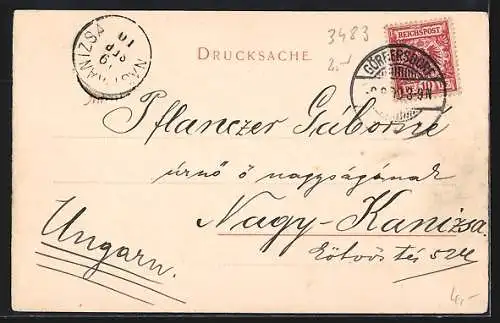 NAGY-KANIZSA
DRUCKSACHE.
3483
2.-
REICHSPOST
10
GÖRBERSDORF
Pflanczer Gáborné
úrnő ő nagyságának
Nagy-Kanizsa.
Eötvös tér
Ungarn.
4,-